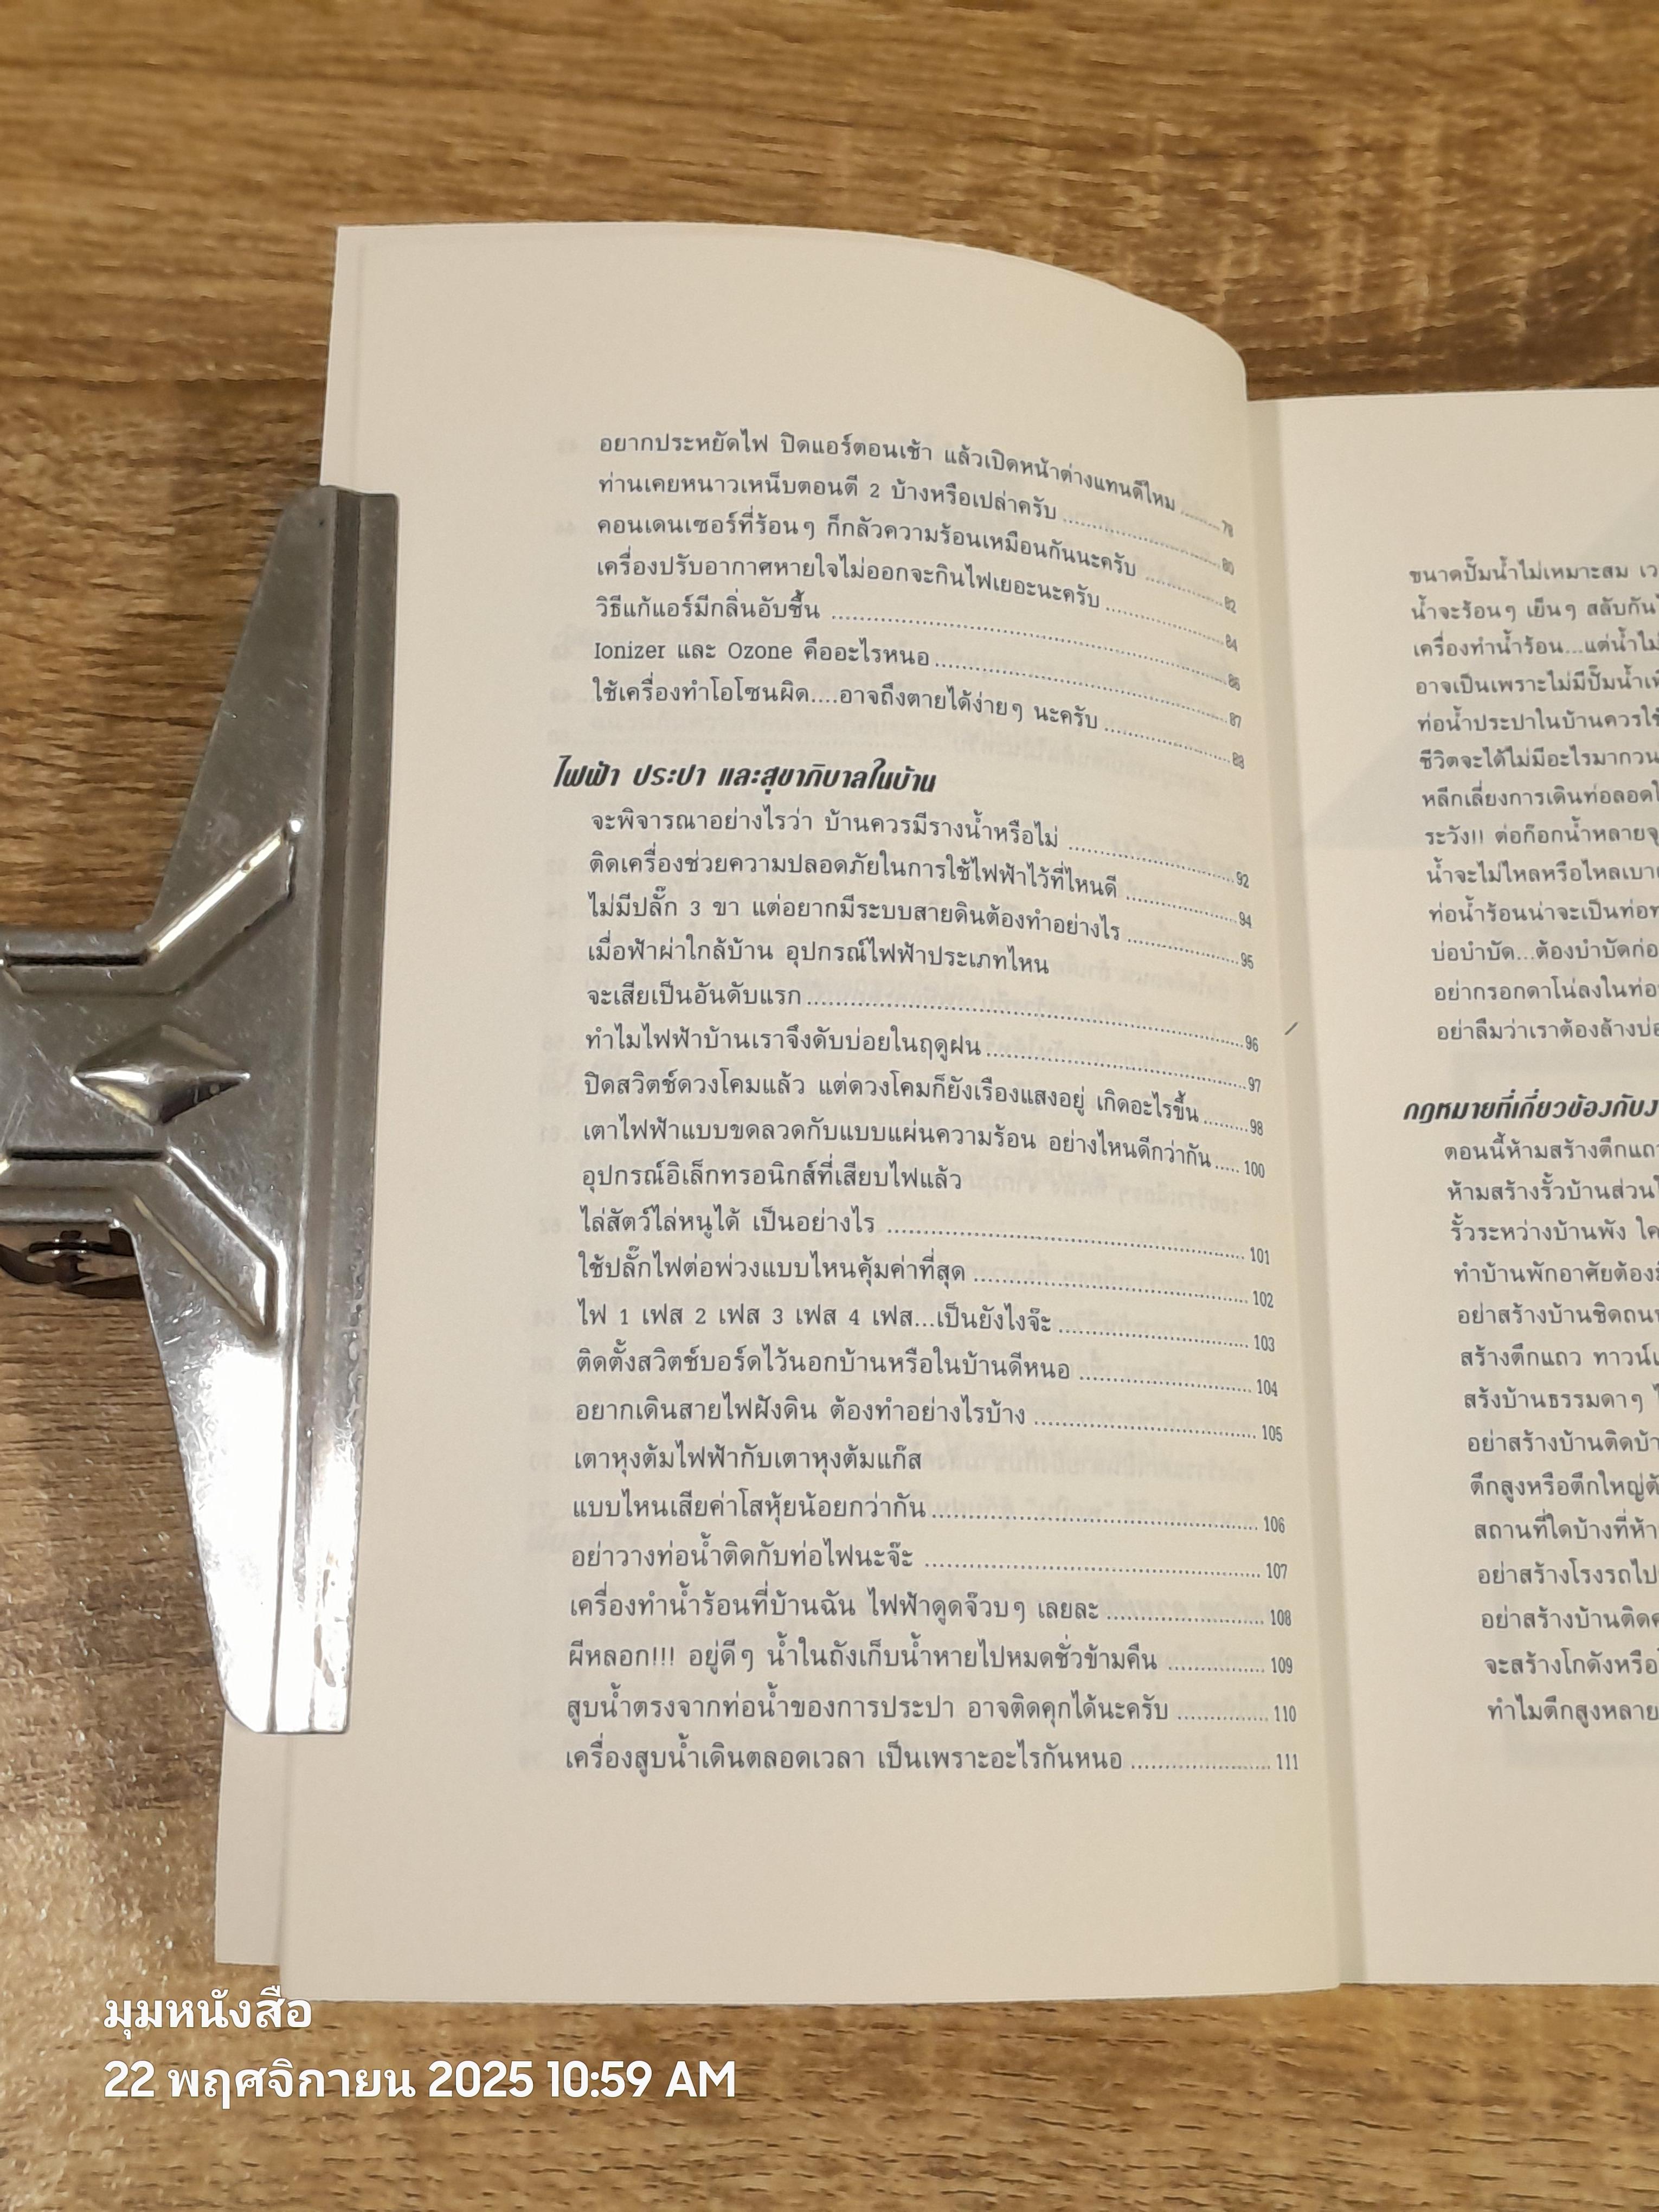 อยากประหยัดไฟ ปิดแอร์ตอนเช้า แล้วเปิดหน้าต่างแทนดีไหม ........79
ท่านเคยหนาวเหน็บตอนตี 2 บ้างหรือเปล่าครับ ........80
คอนเดนเซอร์ที่ร้อนๆ ก็กลัวความร้อนเหมือนกันนะครับ ........82
เครื่องปรับอากาศหายใจไม่ออกจะกินไฟเยอะนะครับ ........84
วิธีแก้แอร์มีกลิ่นอับชื้น ........86
Ionizer และ Ozone คืออะไรหนอ ........87
ใช้เครื่องทำโอโซนผิด....อาจถึงตายได้ง่ายๆ นะครับ ........88
ไฟฟ้า ประปา และสุขาภิบาลในบ้าน
จะพิจารณาอย่างไรว่า บ้านควรมีรางน้ำหรือไม่ ........92
ติดเครื่องช่วยความปลอดภัยในการใช้ไฟฟ้าไว้ที่ไหนดี ........94
ไม่มีปลั๊ก 3 ขา แต่อยากมีระบบสายดินต้องทำอย่างไร ........95
เมื่อฟ้าผ่าใกล้บ้าน อุปกรณ์ไฟฟ้าประเภทไหน
จะเสียเป็นอันดับแรก ........96
ทำไมไฟฟ้าบ้านเราจึงดับบ่อยในฤดูฝน ........97
ปิดสวิตช์ดวงโคมแล้ว แต่ดวงโคมก็ยังเรืองแสงอยู่ เกิดอะไรขึ้น ........98
เตาไฟฟ้าแบบขดลวดกับแบบแผ่นความร้อน อย่างไหนดีกว่ากัน ..... 100
อุปกรณ์อิเล็กทรอนิกส์ที่เสียบไฟแล้ว
ไล่สัตว์ไล่หนูได้ เป็นอย่างไร ........ 101
ใช้ปลั๊กไฟต่อพ่วงแบบไหนคุ้มค่าที่สุด ........ 102
ไฟ 1 เฟส 2 เฟส 3 เฟส 4 เฟส...เป็นยังไงจ๊ะ ........ 103
ติดตั้งสวิตช์บอร์ดไว้นอกบ้านหรือในบ้านดีหนอ ........ 104
อยากเดินสายไฟฝังดิน ต้องทำอย่างไรบ้าง ........ 105
เตาหุงต้มไฟฟ้ากับเตาหุงต้มแก๊ส
แบบไหนเสียค่าโสหุ้ยน้อยกว่ากัน ........ 106
อย่าวางท่อน้ำติดกับท่อไฟนะจ๊ะ ........ 107
เครื่องทำน้ำร้อนที่บ้านฉัน ไฟฟ้าดูดจ๊วบๆ เลยละ ........ 108
ผีหลอก!!! อยู่ดีๆ น้ำในถังเก็บน้ำหายไปหมดชั่วข้ามคืน ........ 109
สูบน้ำตรงจากท่อน้ำของการประปา อาจติดคุกได้นะครับ ........ 110
เครื่องสูบน้ำเดินตลอดเวลา เป็นเพราะอะไรกันหนอ ........ 111
ขนาดปั๊มน้ำไม่เหมาะสม
น้ำจะร้อนๆ เย็นๆ สลับกัน
เครื่องทำน้ำร้อน...แต่น้ำไม่
อาจเป็นเพราะไม่มีปั๊มน้ำ
ท่อน้ำประปาในบ้านควรใช้
ชีวิตจะได้ไม่มีอะไรมากวน
หลีกเลี่ยงการเดินท่อลอด
ระวัง!! ต่อก๊อกน้ำหลาย
น้ำจะไม่ไหลหรือไหลเบา
ท่อน้ำร้อนน่าจะเป็นท่อ
บ่อบำบัด...ต้องบำบัดก่อ
อย่ากรอกดาโน่ลงในท่อ
อย่าลืมว่าเราต้องล้างบ่อ
กฎหมายที่เกี่ยวข้องกับ
ตอนนี้ห้ามสร้างตึกแถว
ห้ามสร้างรั้วบ้านส่วน
รั้วระหว่างบ้านพัง ใค
ทำบ้านพักอาศัยต้อง
อย่าสร้างบ้านชิดถนน
สร้างตึกแถว ทาวน์
สร้งบ้านธรรมดาๆ
อย่าสร้างบ้านติดบ้า
ตึกสูงหรือตึกใหญ่
สถานที่ใดบ้างที่ห้า
อย่าสร้างโรงรถไป
อย่าสร้างบ้านติด
จะสร้างโกดังหรือ
ทำไมตึกสูงหลาย
มุมหนังสือ
22 พฤศจิกายน 2025 10:59 AM